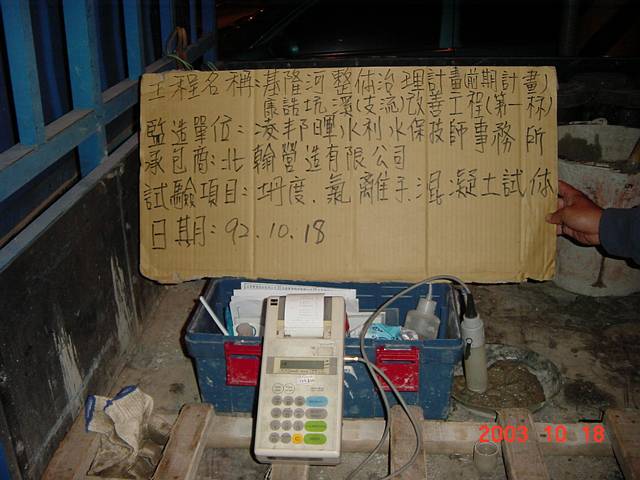 工程名稱:基隆河整体治理計畫(前期計畫)
康誥坑溪(支流)改善工程(第一标)
監造單位:凌邦暉水利水保技師事務所
承包商:北翰營造有限公司
試驗項目:坍度.氯離子.混凝土試体
日期:92.10.18
2003 10 18